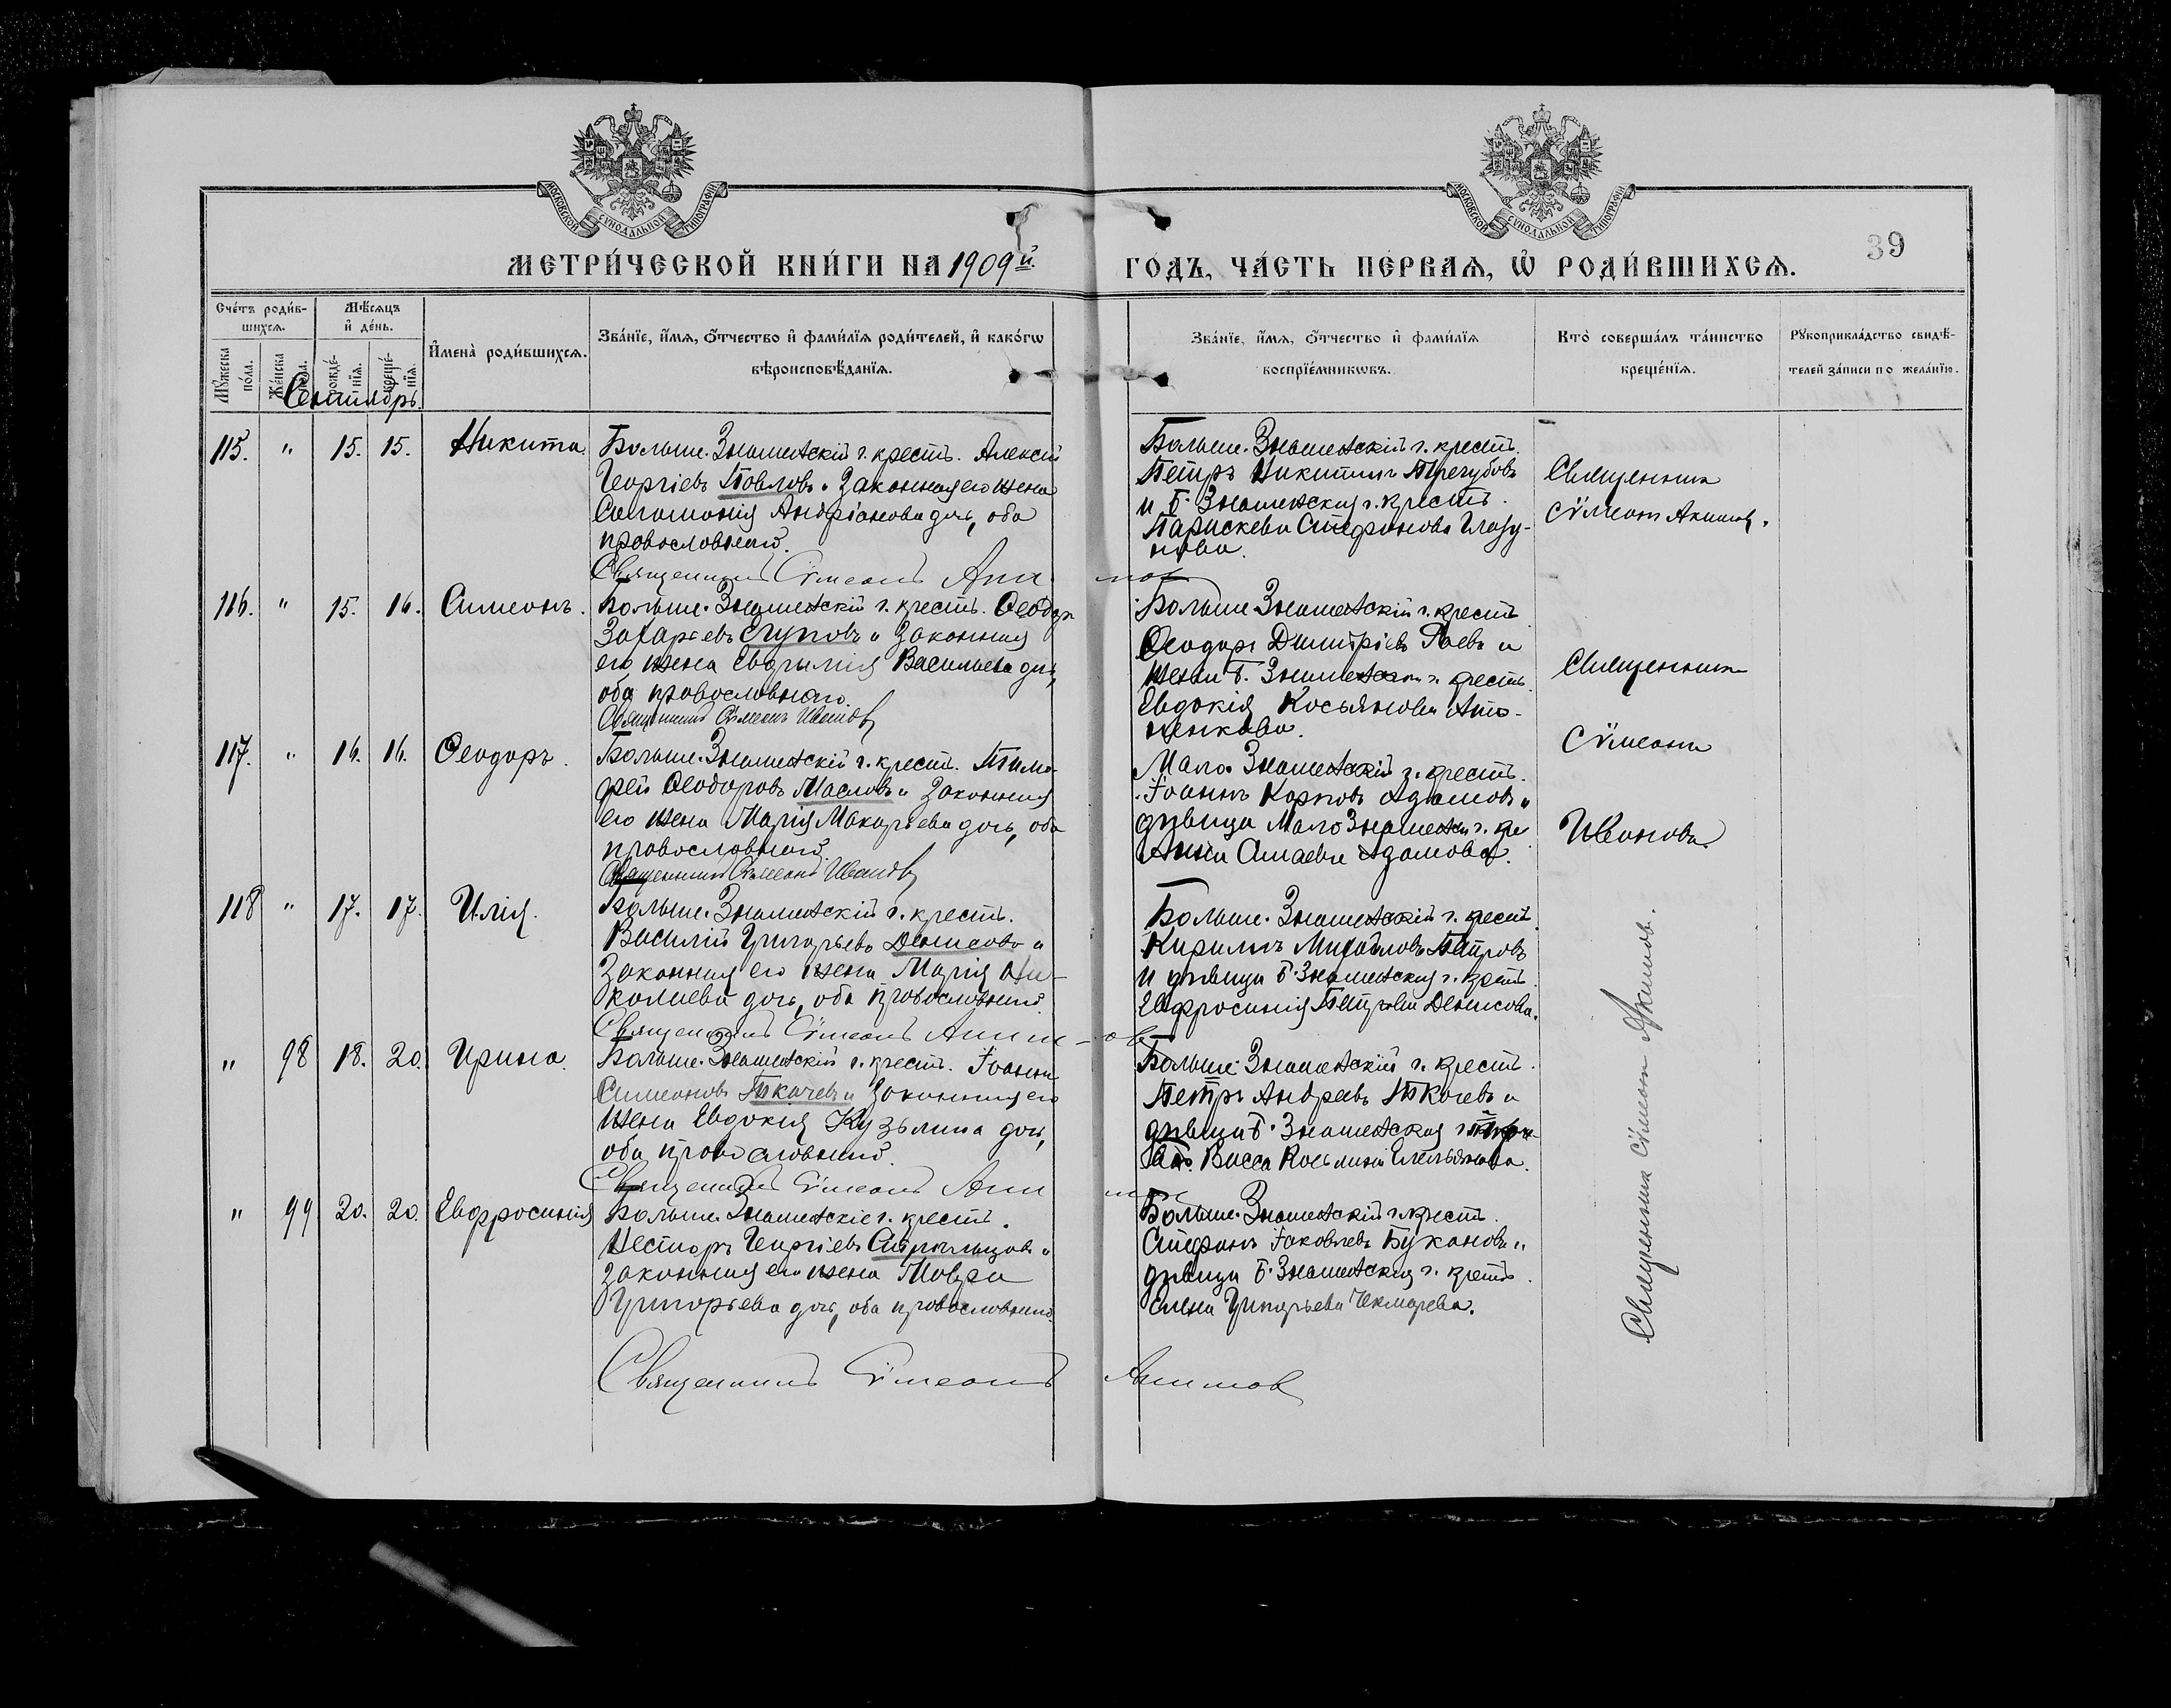 МОСКОВСКОЙ СѴНОДАЛЬНОЙ ТИПОГРАФІИ
МОСКОВСКОЙ СѴНОДАЛЬНОЙ ТИПОГРАФІИ
МЕТРИ́ЧЕСКОЙ КНИ́ГИ НА 1909й
ГО́ДЪ, ЧА́СТЬ ПЕ́РВАѦ, Ѿ РОДИ́ВШИХСѦ.
39
Сче́тъ роди́в-
шихсѧ.
Мѣ́сѧцъ
и҆ де́нь.
И҆мена̀ роди́вшихсѧ.
Зва́нїе, и҆́мѧ, ѻ҆́тчество и҆ фами́лїѧ роди́телей, и҆ како́гѡ
вѣроисповѣ́данїѧ.
Зва́нїе, и҆́мѧ, ѻ҆́тчество и҆ фами́лїѧ
воспрїе́мникѡвъ.
Кто̀ соверша́лъ та́инство
креще́нїѧ.
Рꙋкоприкла́дство свидѣ́-
телей за́писи по жела́нїю.
Мꙋ́жеска
по́ла.
Же́нска
по́ла.
рожде́-
нїѧ.
креще́-
нїѧ.
Сентябрь.
115. " 15. 15. Никита.
Больше-Знаменскій г. крест. Алексій
Георгіевъ Павловъ и законная его жена
Соломонія Андріанова дочь, оба
православнаго.
Священникъ Сѵмеонъ Акимов
Больше-Знаменскій г. крест.
Петръ Никитинъ Трегубовъ
и Б. Знаменская г. крест.
Параскева Стефанова Глазу-
нова.
Священникъ
Сѵмеонъ Акимовъ.
116. " 15. 16. Симеонъ.
Больше-Знаменскій г. крест. Ѳеодоръ
Захарьевъ и законная
его жена Евфимія Васильева дочь,
оба православнаго.
Священникъ Сѵмеонъ Иванов
Больше-Знаменскій г. крест.
Ѳеодоръ Димитріевъ и
жена Б. Знаменскаго г. крест.
Евдокія Косьянова
Священникъ
Сѵмеонъ
Ивановъ.
117. " 16. 16. Ѳеодоръ.
Больше-Знаменскій г. крест. Тимо-
фей Ѳеодоровъ Масловъ и законная
его жена Марія Макарьева дочь, оба
православнаго.
Священникъ Сѵмеонъ Иванов
Мало-Знаменскій г. крест.
Іоаннъ Карповъ Адамовъ и
дѣвица Мало Знаменск. г. кре
Анна Адамова.
118 " 17. 17. Илія.
Больше-Знаменскій г. крест.
Василій Григорьевъ Денисовъ и
законная его жена Марія Ни-
колаева дочь, оба православнаго.
Священникъ Сѵмеонъ Акимов
Больше-Знаменскій г. крест.
Кириллъ Михайловъ Петровъ
и дѣвица Б. Знаменская г. крест.
Евфросинія Петрова Денисова.
Священникъ Сѵмеонъ Акимовъ.
" 98 18. 20. Ирина.
Больше-Знаменскій г. крест. Іоаннъ
Симеоновъ Ткачевъ и законная его
жена Евдокія Кузьмина дочь,
оба православнаго.
Священникъ Сѵмеонъ Акимов
Больше-Знаменскій г. крест.
Петръ Андреевъ Ткачевъ и
дѣвица Б. Знаменская г.
Васса Косьмина Емельянова.
" 99 20. 20. Евфросинія
Больше-Знаменскіе г. крест.
Несторъ Георгіевъ Стрѣльцовъ и
законная его жена Мавра
Григорьева дочь, оба православнаго.
Больше-Знаменскій г. крест.
Стефанъ Іаковлевъ Букановъ и
дѣвица Б. Знаменская г. крест.
Елена Григорьева Чекмарева.
Священникъ Сѵмеонъ Акимов